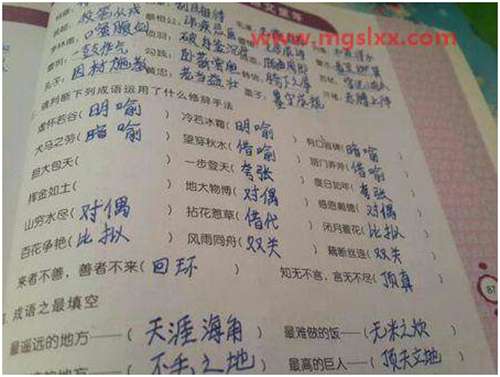 投笔从戎
www.mgslxx.com
李林甫: 口蜜腹剑
破釜沉舟
曹刿: 一鼓作气
勾践: 卧薪尝胆
孔子: 因材施教
黄忠: 老当益壮
请判断下列成语运用了什么修辞手法
虚怀若谷(明喻 冷若冰霜(明喻 有口皆碑(暗喻
犬马之劳(暗喻 望穿秋水(借喻 班门弄斧(借喻
胆大包天( 一步登天(夸张 度日如年(夸张
挥金如土( 地大物博(对偶 感恩戴德(对偶
山穷水尽(对偶 拈花惹草(借代 闭月羞花(比拟
百花争艳(比拟 风雨同舟(双关 藕断丝连(双关
来者不善,善者不来(回环 ) 知无不言,言无不尽(顶真
成语之最填空
最遥远的地方——(天涯海角 ) 最难做的饭——(无米之炊
的地方——(不毛之地 ) 最高的巨人——(顶天立地
87